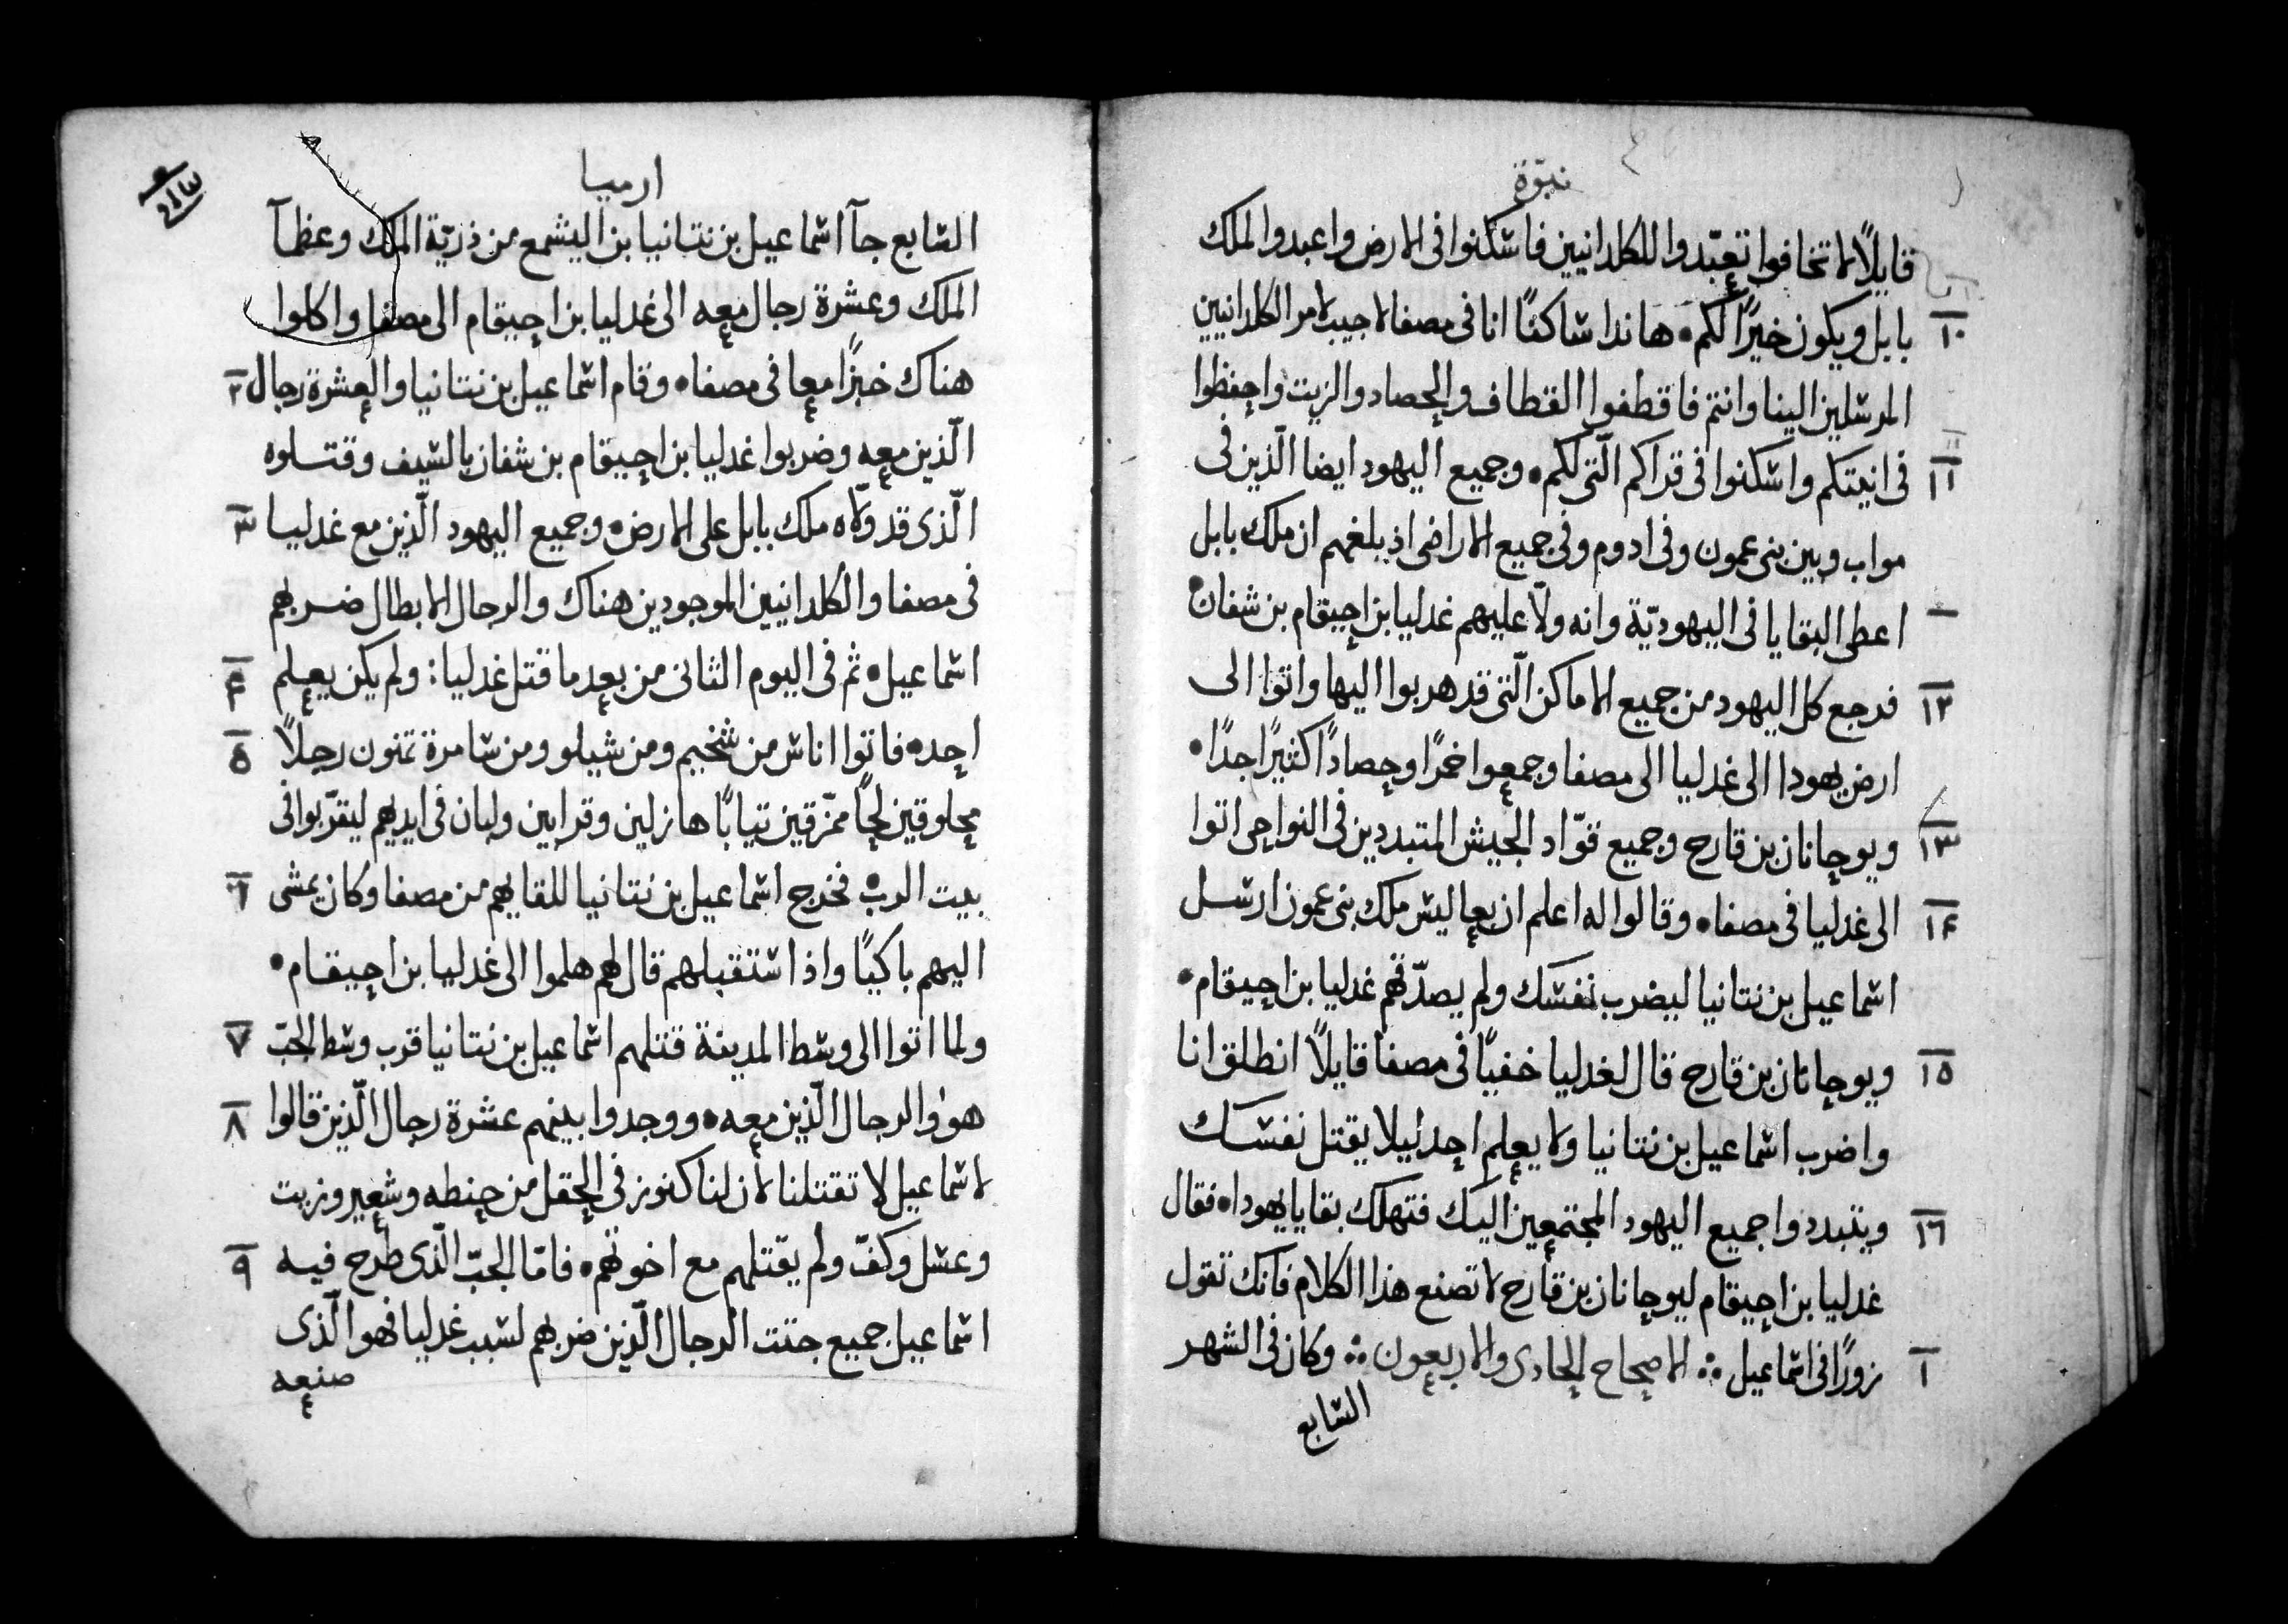 نبوّة
قايلًا لا تخافوا تعبّدوا للكلدانيين فاسكنوا فى الارض واعبدوا الملك
١٠ بابل ويكون خيرًا لكم • هاندا ساكنًا انا فى مصفا لاجيب لامر الكلدانيين
المرسلين الينا وانتم فاقطفوا القطاف والحصاد والزيت واحفظوا
١١ فى انيتكم واسكنوا فى قراكم الّتى لكم • وجميع اليهود ايضا الّذين فى
مواب وبين بنى عمون وفى ادوم وفى جميع الاراضى اذ بلغهم ان ملك بابل
اعطى البقايا فى اليهوديّة وانه ولّا عليهم غدليا بن احيقام بن شفان •
١٢ فرجع كل اليهود من جميع الاماكن الّتى قد هربوا اليها واتوا الى
ارض يهودا الى غدليا الى مصفا وجمعوا خمرًا وحصادًا كثيرًا جدًا •
١٣ ويوحانان بن قارح وجميع قوّاد الجيش المتبددين فى النواحى اتوا
١٤ الى غدليا فى مصفا • وقالوا له اعلم ان بعاليس ملك بنى عمون ارسل
اسماعيل بن نتانيا ليضرب نفسك ولم يصدّقهم غدليا بن احيقام •
١٥ ويوحانان بن قارح قال لغدليا خفيًا فى مصفا قايلًا انطلق انا
واضرب اسماعيل بن نتانيا ولا يعلم احد ليلا يقتل نفسك
١٦ ويتبددوا جميع اليهود المجتمعين اليك فتهلك بقايا يهودا • فقال
غدليا بن احيقام ليوحانان بن قارح لا تصنع هذا الكلام فانك تقول
١ زورًا فى اسماعيل ܀ الاصحاح الحادى والاربعون ܀ وكان فى الشهر
السابع
ارميا
السابع جآ اسماعيل بن نتانيا بن اليشمع من ذريّة الملك وعظمآ
الملك وعشرة رجال معه الى غدليا بن احيقام الى مصفا واكلوا
٢ هناك خبزًا معا فى مصفا • وقام اسماعيل بن نتانيا والعشرة رجال
الّذين معه وضربوا غدليا بن احيقام بن شفان بالسيف وقتلوه
٣ الّذى قد ولّاه ملك بابل على الارض • وجميع اليهود الّذين مع غدليا
فى مصفا والكلدانيين الموجودين هناك والرجال الابطال ضربهم
٤ اسماعيل • ثم فى اليوم الثانى من بعد ما قتل غدليا : ولم يكن يعلم
٥ احد • فاتوا اناس من شخيم ومن شيلو ومن سامرة ثمنون رجلًا
محلوقين لحًا ممزّقين ثيابًا هازلين وقرابين ولبان فى ايديهم ليقرّبوا فى
٦ بيت الرب • فخرج اسماعيل بن نتانيا للقايهم من مصفا وكان يمشى
اليهم باكيًا واذ استقبلهم قال لهم هلموا الى غدليا بن احيقام •
٧ ولما اتوا الى وسط المدينة قتلهم اسماعيل بن نتانيا قرب وسط الجبّ
٨ هو والرجال الّذين معه • ووجدوا بينهم عشرة رجال الّذين قالوا
لاسماعيل لا تقتلنا لان لنا كنوز فى الحقل من حنطه وشعير وزيت
٩ وعسل وكفّ ولم يقتلهم مع اخوتهم • فامّا الجبّ الّذى طرح فيه
اسماعيل جميع جثت الرجال الّذين ضربهم لسبب غدليا فهو الّذى
صنعه